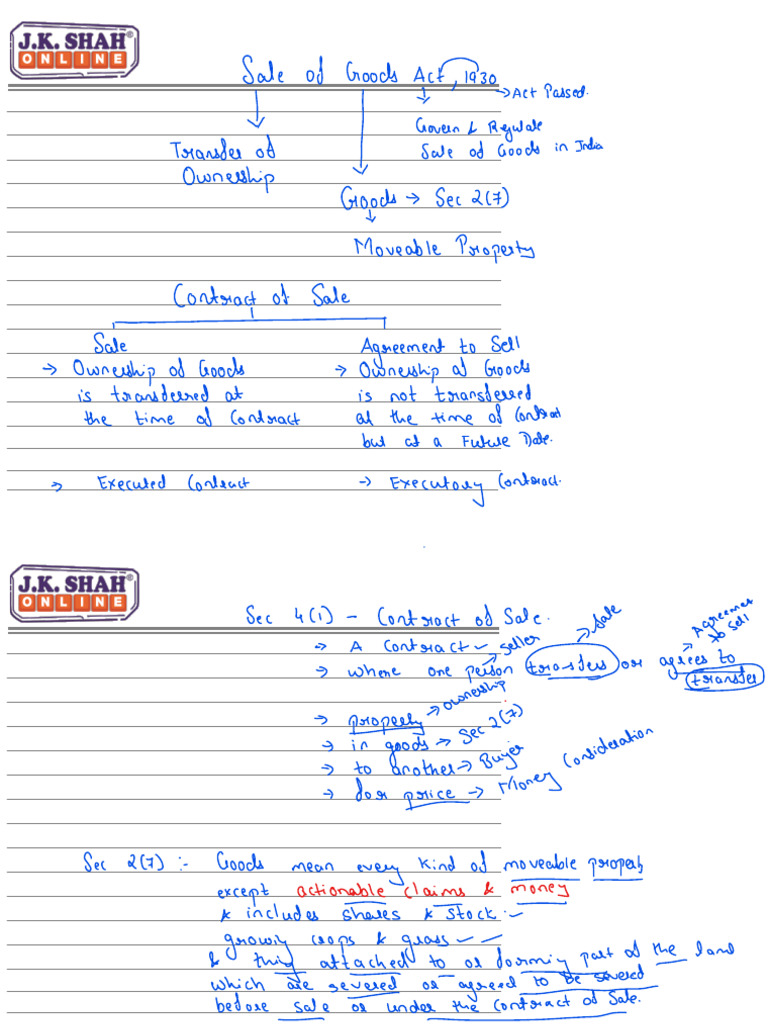 J.K. SHAH®
ONLINE
Sale of Goods Act, 1930
→ Act Passed.
Govern & Regulate
Sale of Goods in India
Transfer of
Ownership
Goods → Sec 2(7)
Moveable Property
Contract of Sale
Sale
Agreement to Sell
→ Ownership of Goods
is transferred at
the time of Contract
→ Ownership of Goods
is not transferred
at the time of Contract
but at a Future Date.
→ Executed Contract
→ Executory Contract.
J.K. SHAH®
ONLINE
Sec 4(1) - Contract of Sale.
→ A Contract
→ where one person transfers or agrees to
transfer
→ Seller
→ Sale
→ Agreement
to Sell
→ property → Ownership
→ in goods → Sec 2(7)
→ to another → Buyer
→ for price → Money Consideration
Sec 2(7) :- Goods mean every kind of moveable property
except actionable claims & money
& includes shares & stock
growing crops & grass
& thing attached to or forming part of the land
which are severed or agreed to be severed
before sale or under the contract of Sale.